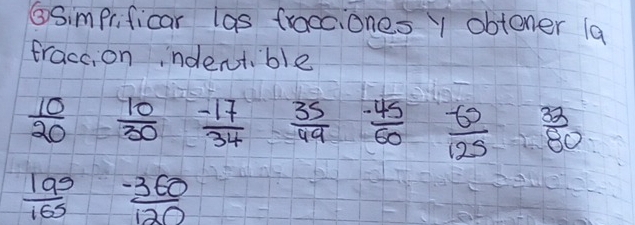 ③ Simprificar las fracciones y obtener la
fraccion indentible
10/20 10/30 -17/34 35/49 -45/60 -65/125 32/80
195/165 -360/120